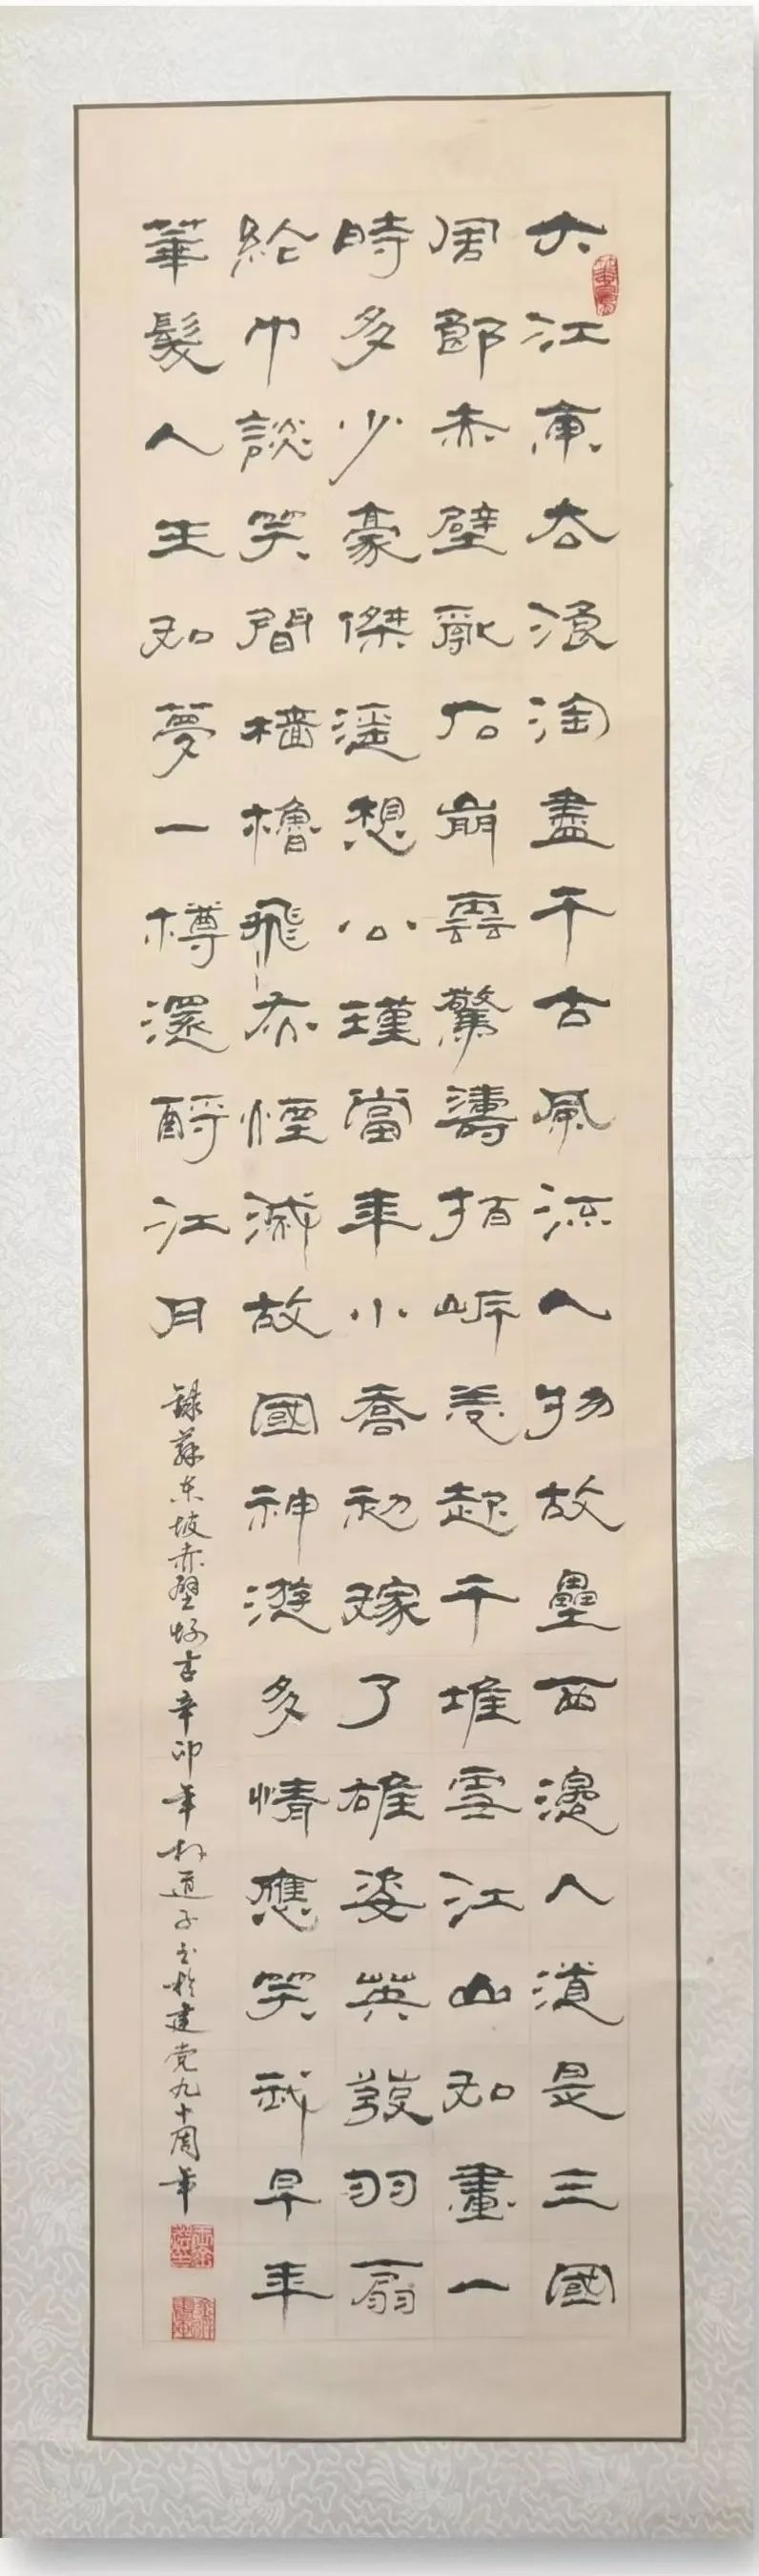 大江東去浪淘盡千古風流人物故壘西邊人道是三國
周郎赤壁亂石崩雲驚濤拍岸卷起千堆雪江山如畫一
時多少豪傑遥想公瑾當年小喬初嫁了雄姿英發羽扇
綸巾談笑間檣櫓飛灰煙滅故國神遊多情應笑我早年
華髮人生如夢一樽還酹江月
錄蘇東坡赤壁懷古辛卯年道子书於建党九十周年